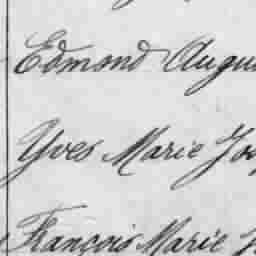 Edmond Augu
Yves Marie Jos
François Marie J